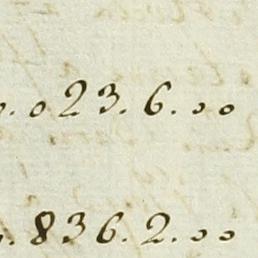 .023.6.00
.836.2.00